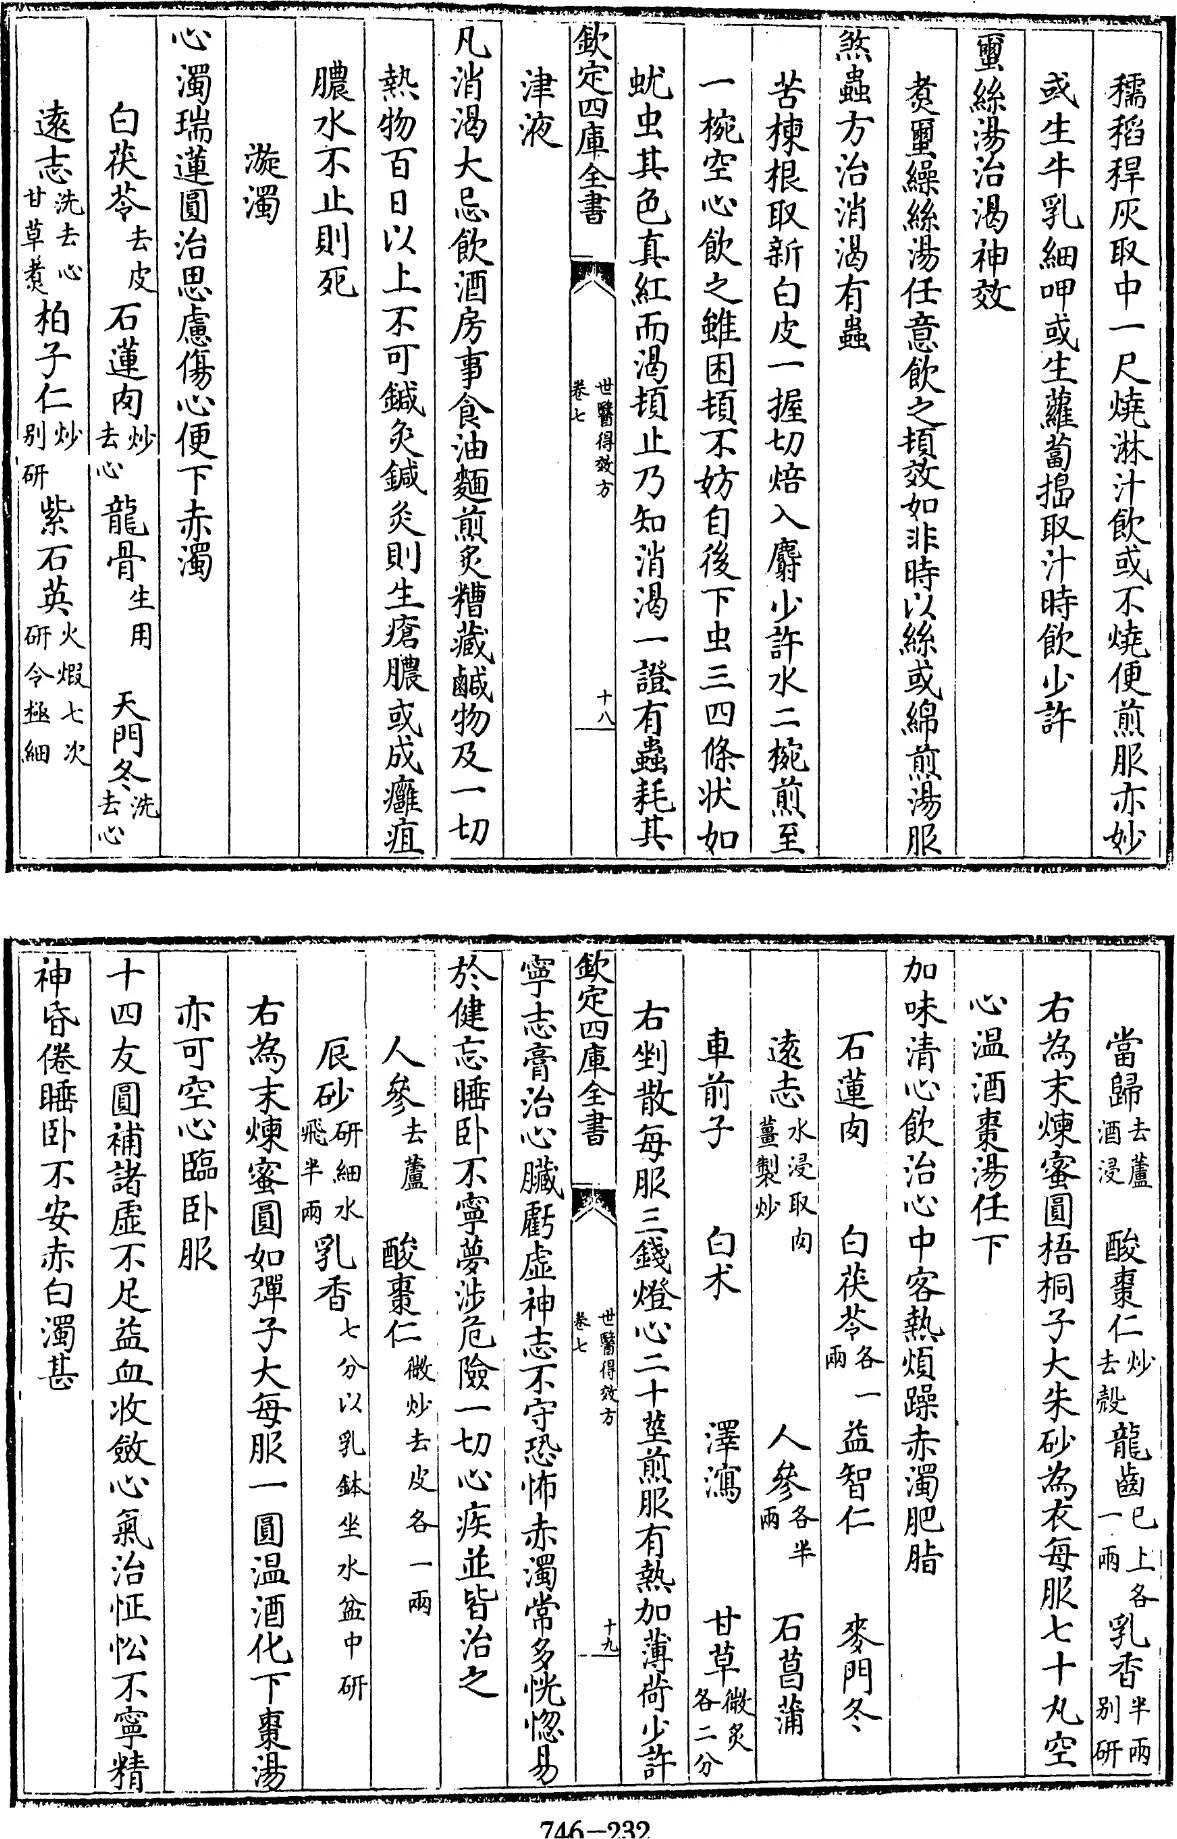 穤稻稈灰取中一尺燒淋汁飲或不燒便煎服亦妙
或生牛乳細呷或生蘿蔔搗取汁時飲少許
蠒絲湯治渴神效
煑蠒繰絲湯任意飲之頓效如非時以絲或綿煎湯服
煞蟲方治消渴有蟲
苦楝根取新白皮一握切焙入麝少許水二椀煎至
一椀空心飲之雖困頓不妨自後下虫三四條状如
蚘虫其色真紅而渴頓止乃知消渴一證有蟲耗其
欽定四庫全書
世醫得效方
卷七
十八
津液
凡消渴大忌飲酒房事食油麵煎炙糟藏鹹物及一切
熱物百日以上不可鍼灸鍼灸則生瘡膿或成癰疽
膿水不止則死
漩濁
心濁瑞蓮圓治思慮傷心便下赤濁
白茯苓去皮 石蓮肉炒去心 龍骨生用 天門冬洗去心
遠志洗去心甘草煑 柏子仁炒别研 紫石英火煆七次研令極細
當歸去蘆酒浸 酸棗仁炒去殼 龍齒已上各一兩 乳香半兩别研
右為末煉蜜圓梧桐子大朱砂為衣每服七十丸空
心温酒棗湯任下
加味清心飲治心中客熱煩躁赤濁肥脂
石蓮肉 白茯苓各一兩 益智仁 麥門冬
遠志水浸取肉薑製炒 人參各半兩 石菖蒲
車前子 白术 澤瀉 甘草微炙各二分
右剉散每服三錢燈心二十莖煎服有熱加薄荷少許
欽定四庫全書
世醫得效方
卷七
十九
寧志膏治心臟虧虛神志不守恐怖赤濁常多恍惚易
於健忘睡卧不寧夢涉危險一切心疾並皆治之
人參去蘆 酸棗仁微炒去皮各一兩
辰砂研細水飛半兩 乳香七分以乳鉢坐水盆中研
右為末煉蜜圓如彈子大每服一圓温酒化下棗湯
亦可空心臨卧服
十四友圓補諸虛不足益血收斂心氣治怔忪不寧精
神昏倦睡卧不安赤白濁甚
746-232